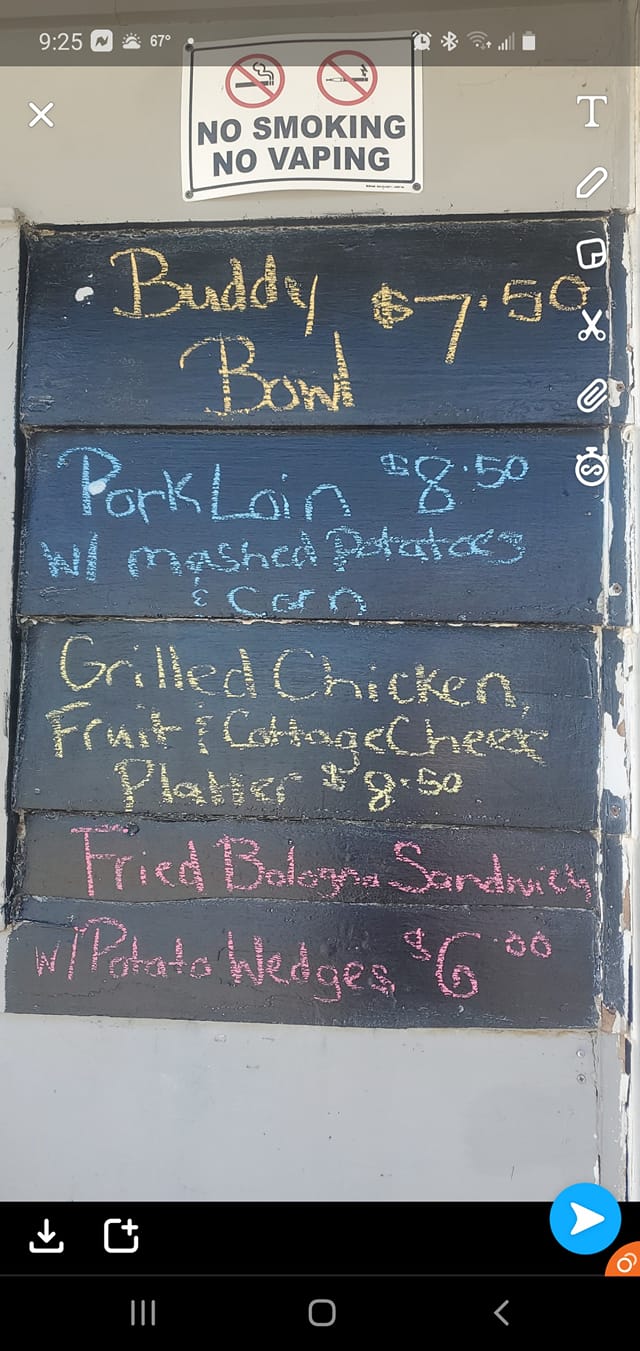 9:25 67°
NO SMOKING
NO VAPING
T
Buddy $7.50
Bowl
Pork Loin $8.50
w/ mashed Potatoes
& Corn
Grilled Chicken,
Fruit & Cottage Cheese
Platter $8.50
Fried Bologna Sandwich
w/ Potato Wedges $6.00